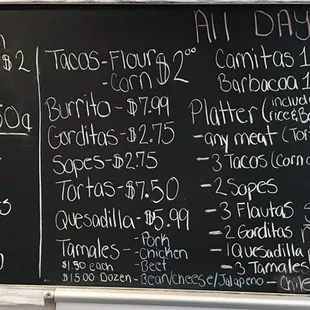 $2
50¢
Tacos-Flour
-Corn $2.00
Burrito-$7.99
Gorditas-$2.75
Sopes-$2.75
Tortas-$7.50
Quesadilla-$5.99
Tamales -Pork
-Chicken
$1.50 each -Beef
$15.00 Dozen -Bean/cheese/Jalapeno
All DAY
Carnitas 1
Barbacoa 1
Platter (inclu
(rice & B
-any meat (Tor
-3 Tacos (corn o
-2 Sopes
-3 Flautas
-2 Gorditas
-1 Quesadilla
-3 Tamales
-Chile